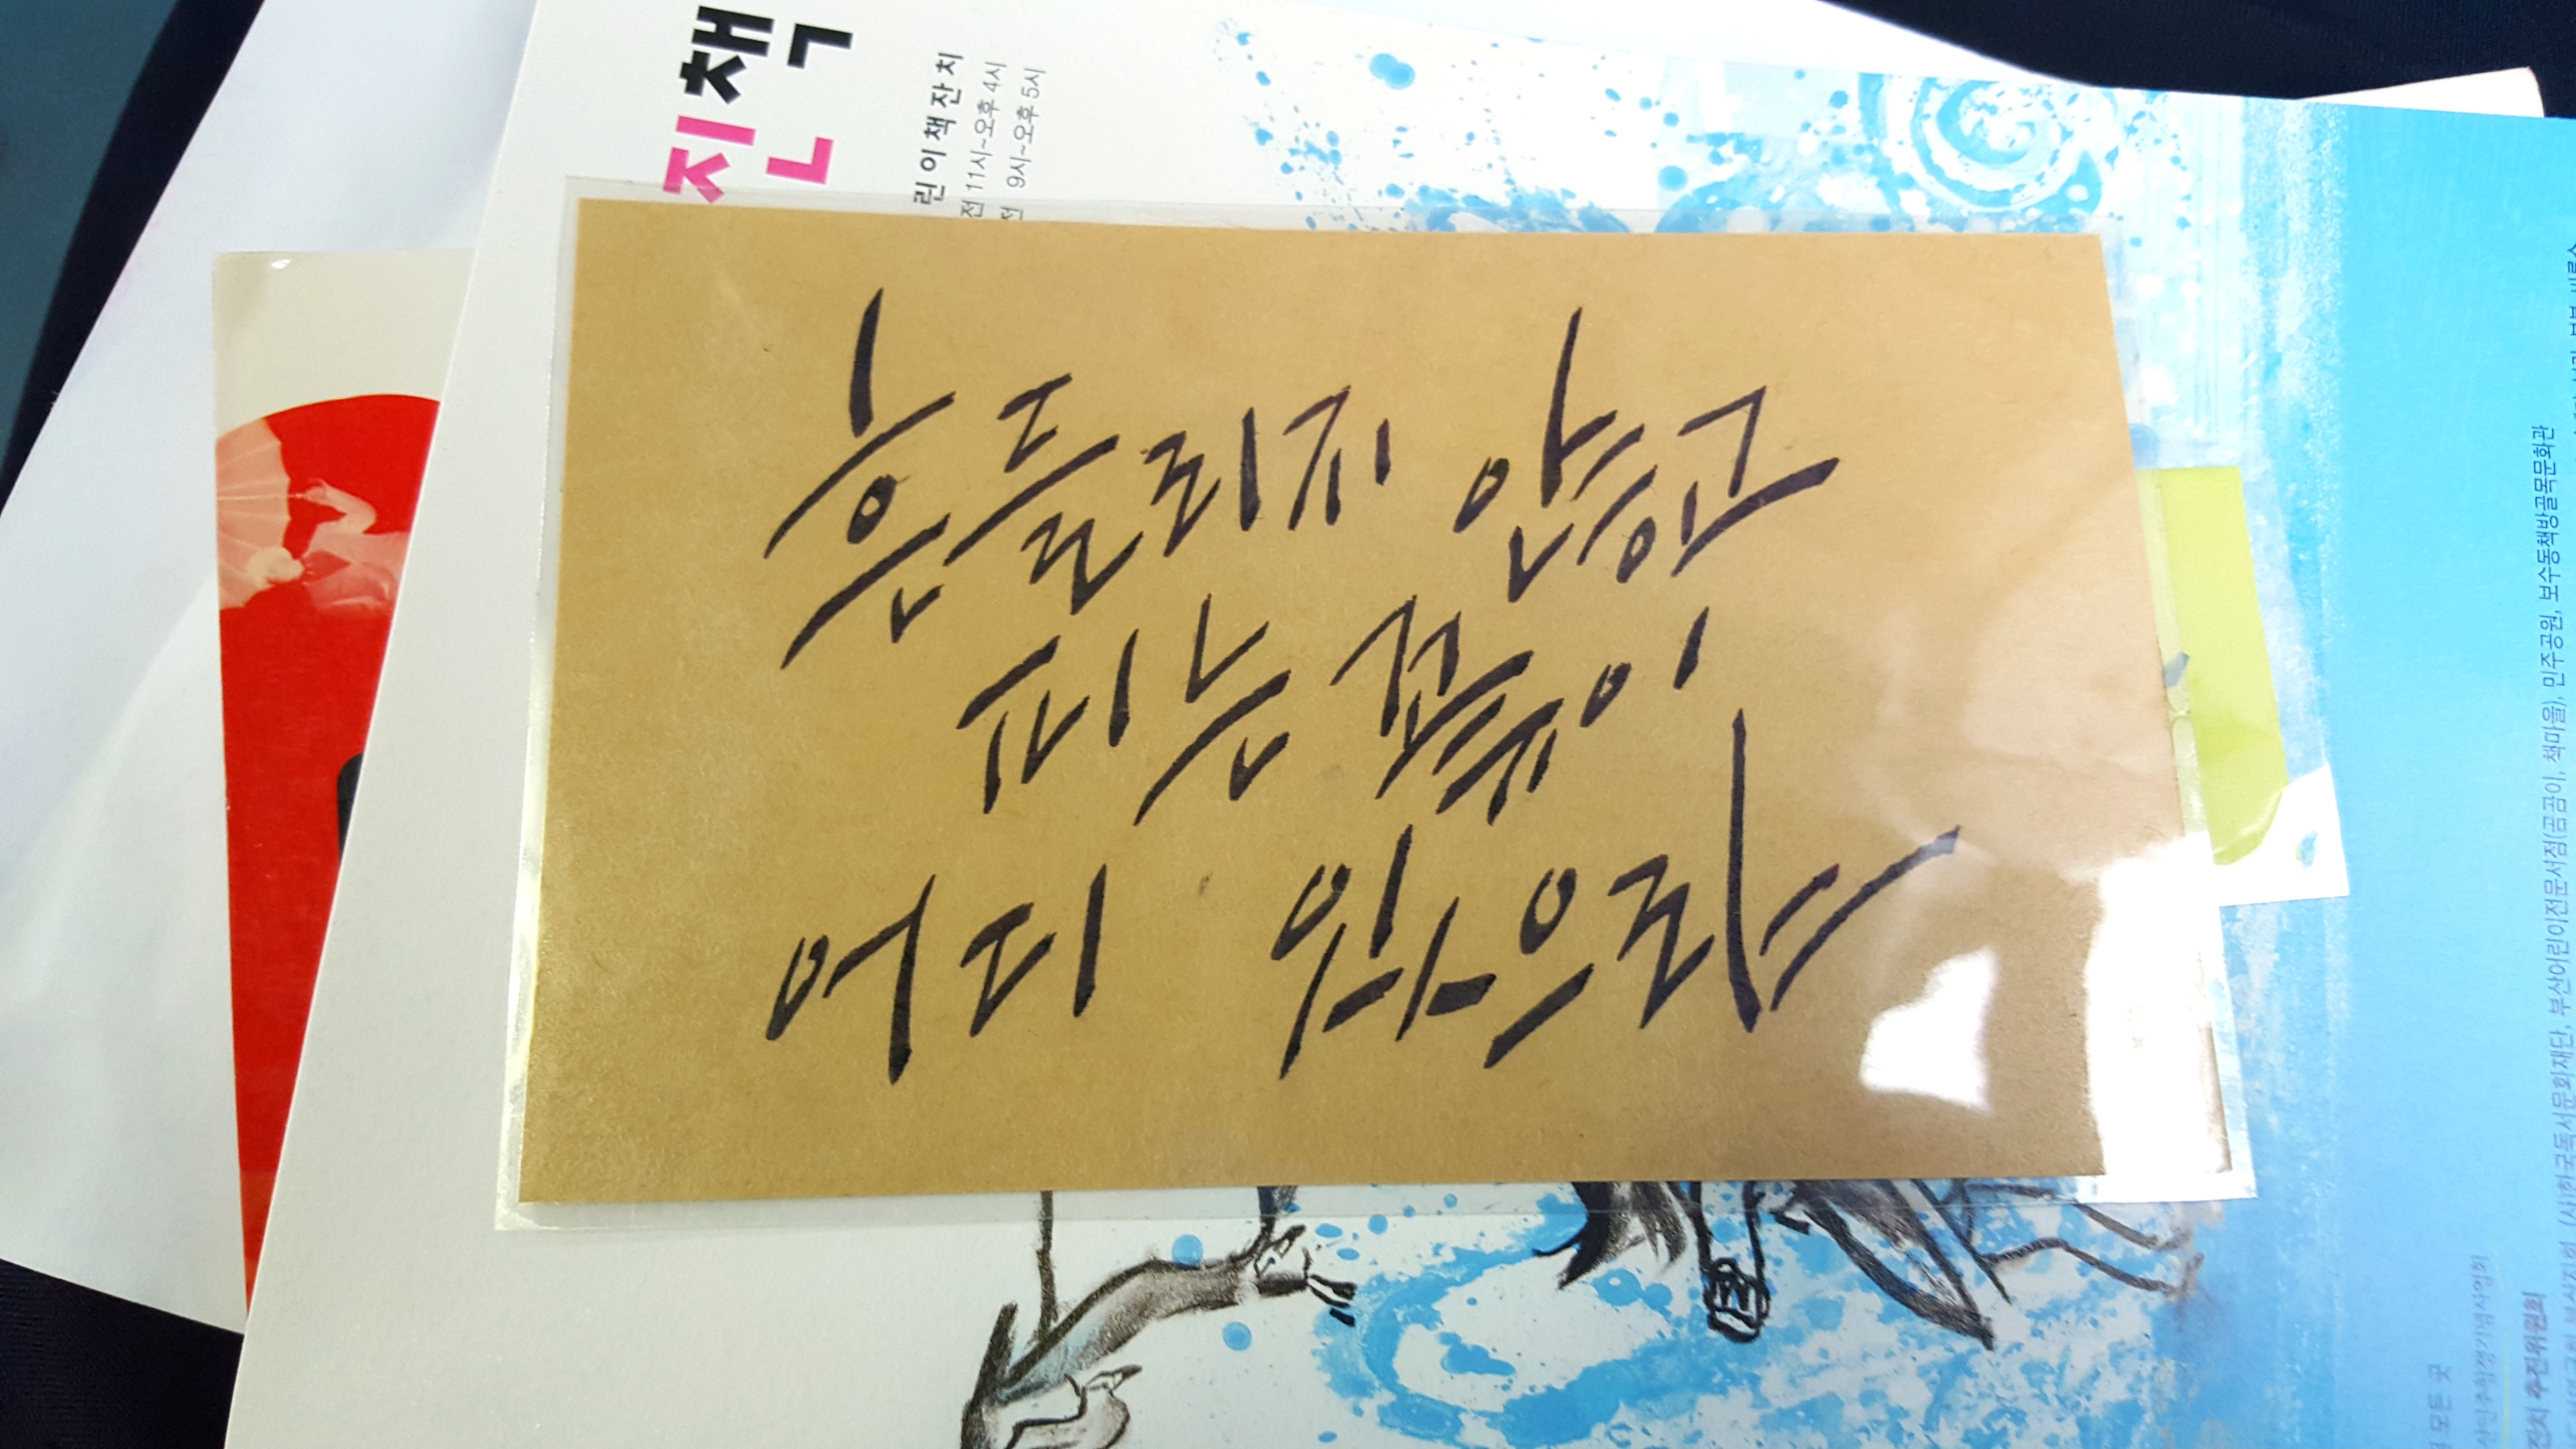 흔들리지 않고
피는 꽃이
어디 있으랴
진책
린이책잔치
전 11시~오후 4시
전 9시~오후 5시
보수동책방골목문화관
민주공원,
부산어린이전문서점(곰곰이, 책마을),
(사)한국독서문화재단,
모든 곳
잔치 추진위원회